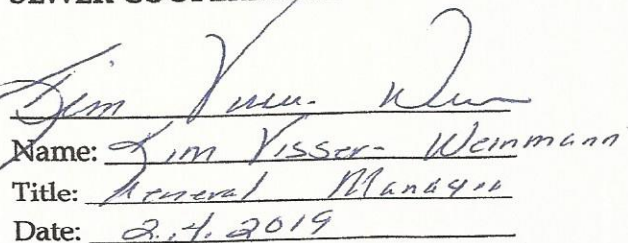 SEWER
Kim Visser- Weinmann
Name: Kim Visser- Weinmann
Title: General Manager
Date: 2.4.2019